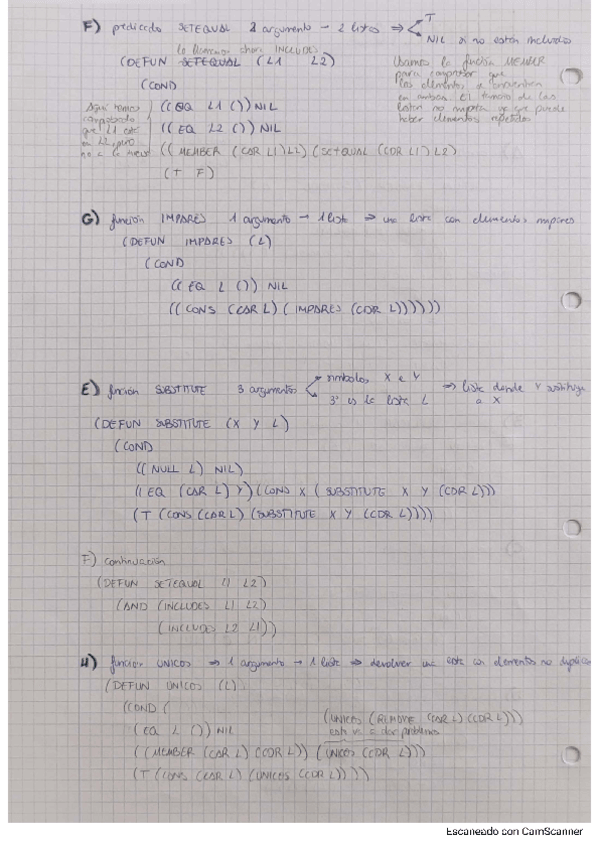 F) predicado SETEQUAL 2 argumento → 2 listas ⇒ T
NIL si no están incluidos
lo llamamos ahora INCLUDES
(DEFUN SETEQUAL (L1 L2)
Usamos la función MEMBER
para comprobar que
los elementos se encuentran
en ambas. El tamaño de las
listas no importa ya que puede
haber elementos repetidos
(COND
Aquí hemos
comprobado
que L1 está
en L2, pero
no a la inversa
((EQ L1 ()) NIL
((EQ L2 ()) NIL
((MEMBER (CAR L1) L2) (SETEQUAL (CDR L1) L2)
(T F)
G) función IMPARES 1 argumento → 1 lista ⇒ una lista con elementos impares
(DEFUN IMPARES (L)
(COND
((EQ L ()) NIL
((CONS (CAR L) (IMPARES (CDR L))))))
E) función SUBSTITUTE 3 argumentos
símbolos, X e Y
3º es la lista L
⇒ lista donde Y sustituye
a X
(DEFUN SUBSTITUTE (X Y L)
(COND
((NULL L) NIL)
((EQ (CAR L) Y) (CONS X (SUBSTITUTE X Y (CDR L)))
(T (CONS (CAR L) (SUBSTITUTE X Y (CDR L))))
F) continuación
(DEFUN SETEQUAL L1 L2)
(AND (INCLUDES L1 L2)
(INCLUDES L2 L1))
H) función UNICOS ⇒ 1 argumento → 1 lista ⇒ devolver una lista con elementos no duplica
(DEFUN UNICOS (L)
(COND (
(UNICOS (REMOVE (CAR L) (CDR L)))
esto va a dar problemas
(EQ L ()) NIL
((MEMBER (CAR L) (CDR L)) (UNICOS (CDR L)))
(T (CONS (CAR L) (UNICOS (CDR L))))
Escaneado con CamScanner